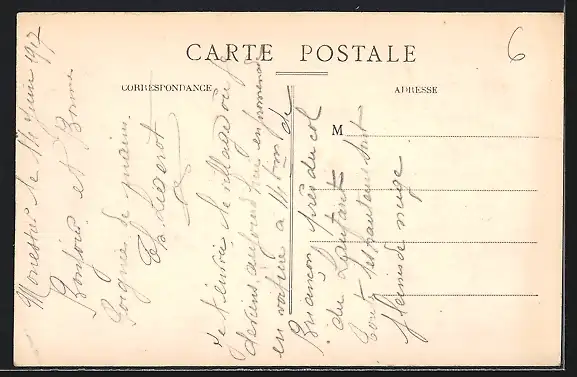 CARTE POSTALE
6
CORRESPONDANCE
ADRESSE
M
Monestier le 17 juin 1917
Bonjour et Bonne
Poignée de main
Je t'envoie le village où
je suis aujourd'hui en promenade
en voiture à 14 km de
Briançon près du col
du Lautaret
tout les hauteurs sont
pleines de neige